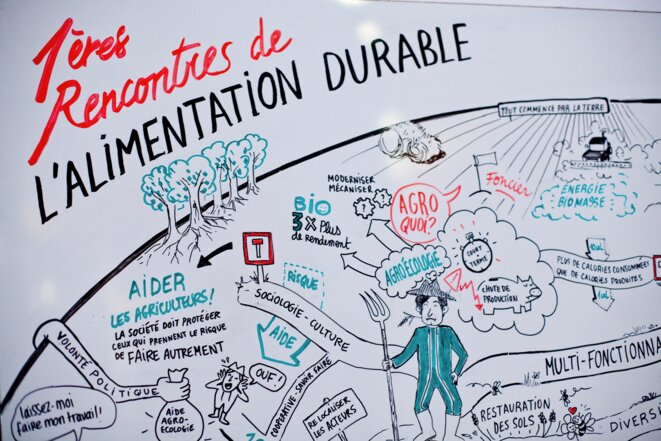 1ères
Rencontres de
L'ALIMENTATION DURABLE
TOUT COMMENCE PAR LA TERRE
MODERNISER
MÉCANISER
BIO
3 x Plus
de rendement
AGRO
QUOI?
Foncier
ÉNERGIE
BIOMASSE
COURT
TERME
AGROÉCOLOGIE
CHUTE DE
PRODUCTION
PLUS DE CALORIES CONSOMMÉES
QUE DE CALORIES PRODUITES
AIDER
LES AGRICULTEURS!
LA SOCIÉTÉ DOIT PROTÉGER
CEUX QUI PRENNENT LE RISQUE
DE FAIRE AUTREMENT
RISQUE
AIDE
SOCIOLOGIE - CULTURE
VOLONTÉ POLITIQUE
OUF!
COOPÉRATIVE - SAVOIR FAIRE
laissez-moi
faire mon travail!
AIDE
AGRO-
ÉCOLOGIE
RELOCALISER
LES ACTEURS
MULTI-FONCTIONNA
RESTAURATION
DES SOLS
DIVERS